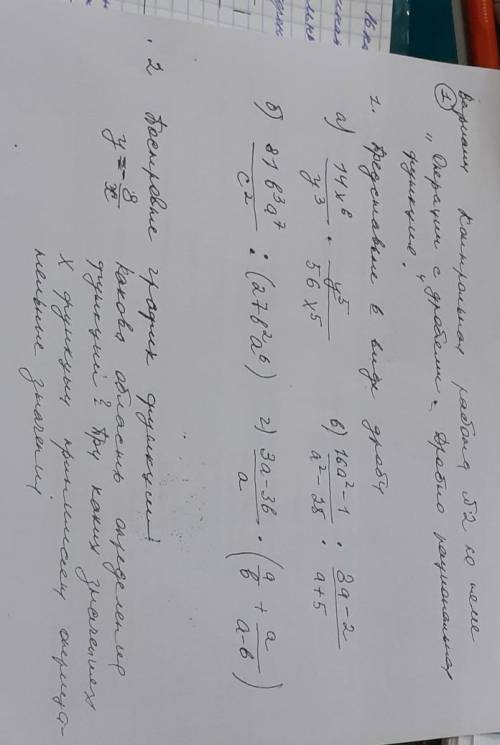 Вариант Контрольная работа №2 по теме
① „Операции с дробями. Дробно рациональная
функция.
1. Представьте в виде дроби
а) 14x⁶/y³ · y⁵/56x⁵
в) 16a²-1/a²-28 : 8a-2/a+5
б) 81b³a⁷/c² : (27b²a⁶)
г) 3a-3b/a · (a/b + a/a-b)
2 Постройте график функции!
y = -8/x Какова область определения
функций? При каких значениях
x функция принимает отрица-
тельные значения